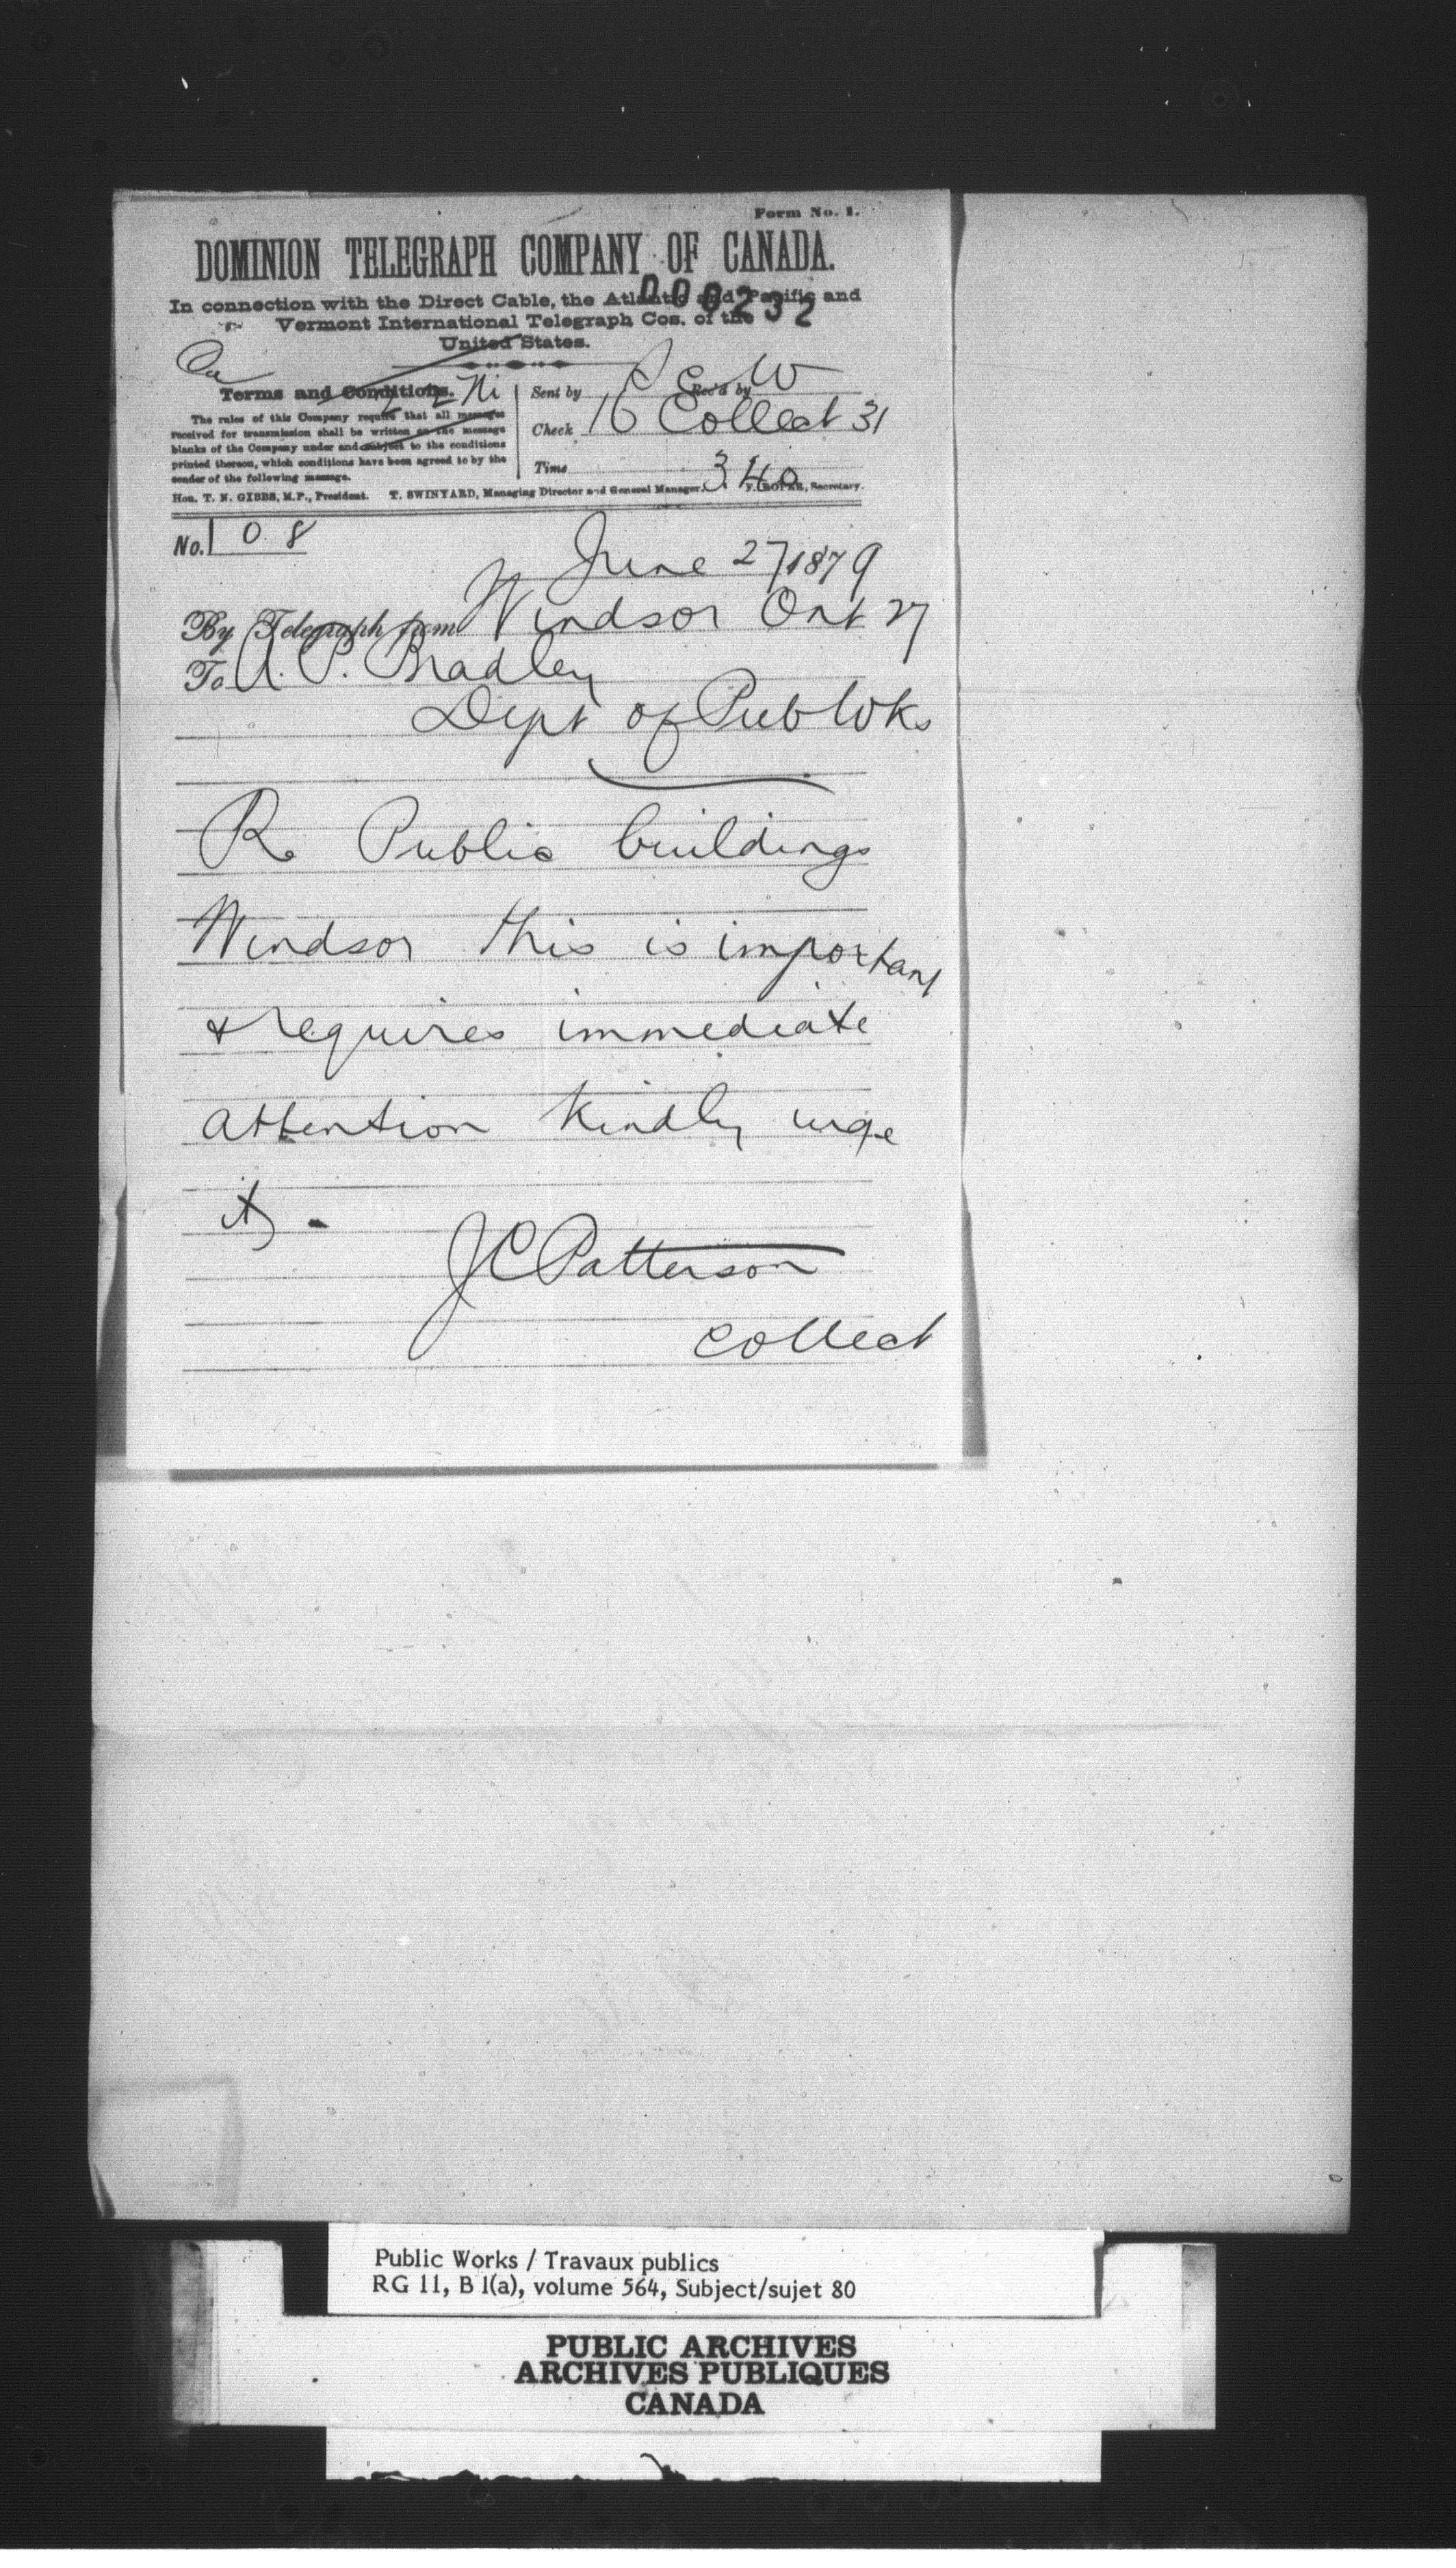 Form No. 1.
DOMINION TELEGRAPH COMPANY OF CANADA.
000232
In connection with the Direct Cable, the Atlantic and Pacific and
Vermont International Telegraph Cos. of the
United States.
Terms and Conditions.
The rules of this Company require that all messages
received for transmission shall be written on the message
blanks of the Company under and subject to the conditions
printed thereon, which conditions have been agreed to by the
sender of the following message.
Sent by Rec'd by W
Check 16 Collect 31
Time 340
Hon. T. N. GIBBS, M.P., President. T. SWINYARD, Managing Director and General Manager. F. ROPER, Secretary.
No. 108
June 27 1879
By Telegraph from Windsor Ont 27
To A. P. Bradley
Dept of Pub Wks
Re Public buildings
Windsor this is important
& requires immediate
attention Kindly urge
it.
J C Patterson
collect
Public Works / Travaux publics
RG 11, B 1(a), volume 564, Subject/sujet 80
PUBLIC ARCHIVES
ARCHIVES PUBLIQUES
CANADA